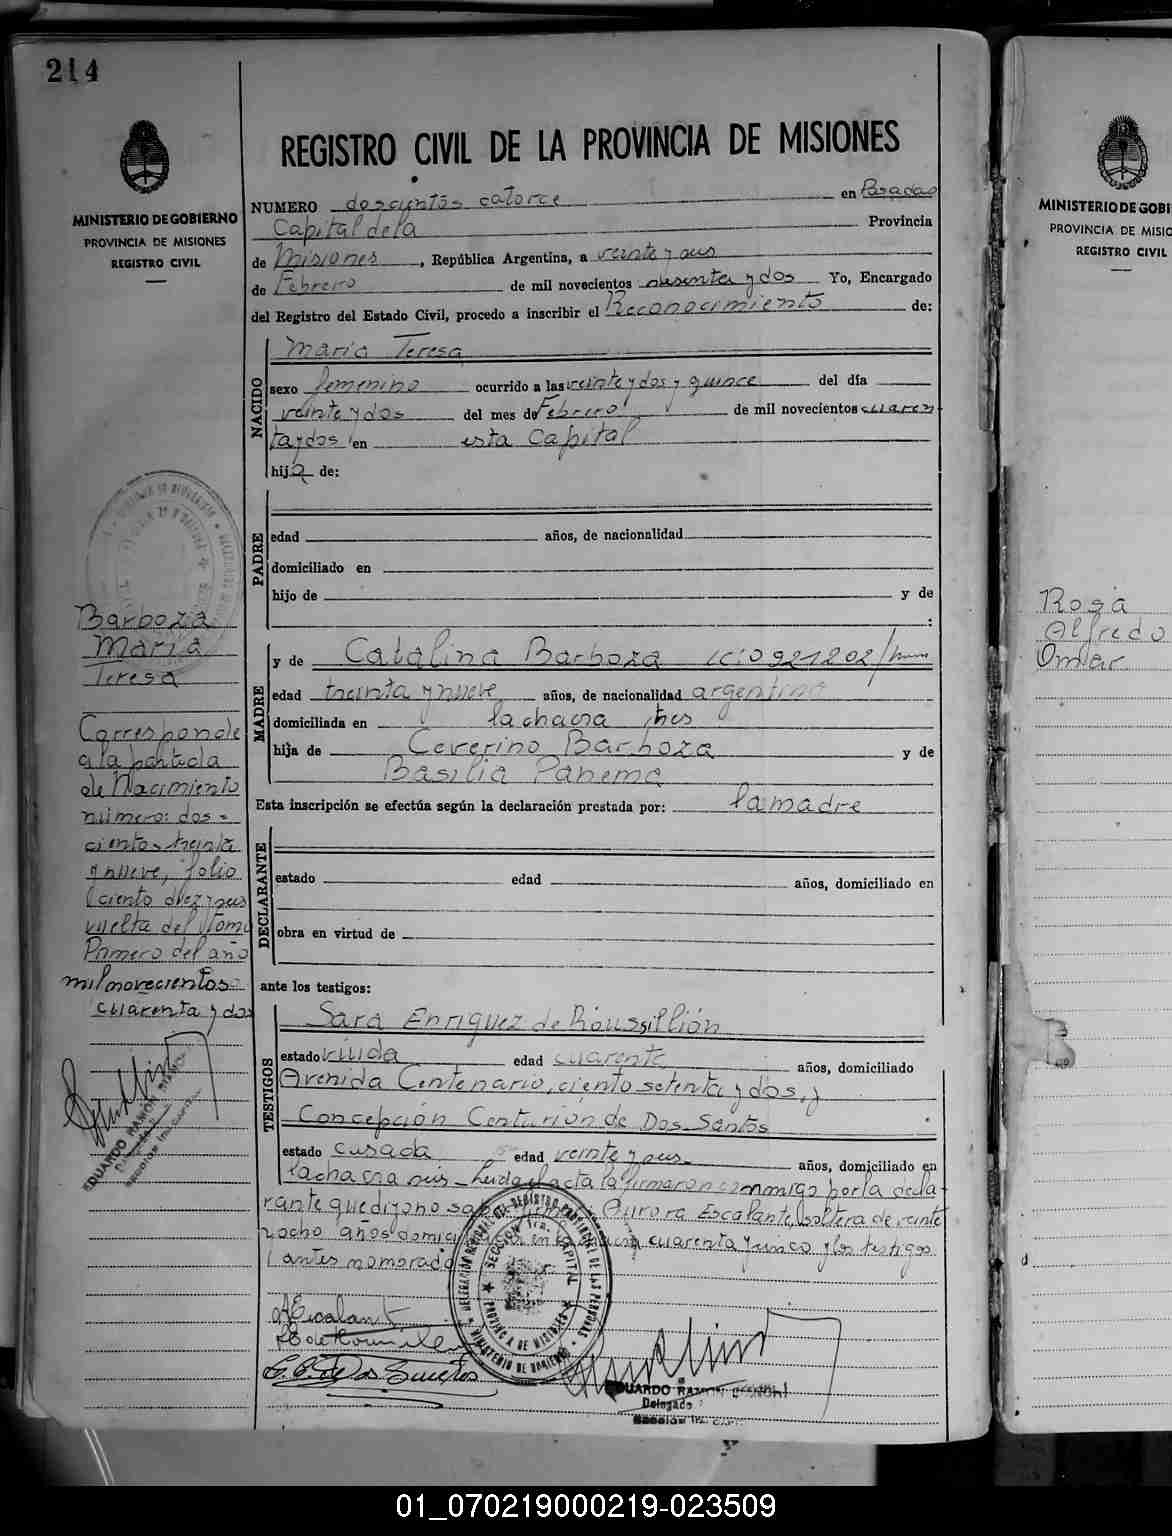 214
MINISTERIO DE GOBIERNO
PROVINCIA DE MISIONES
REGISTRO CIVIL
REGISTRO CIVIL DE LA PROVINCIA DE MISIONES
NUMERO doscientos catorce en Posadas
Capital de la Provincia
de Misiones, República Argentina, a veinte y seis
de Febrero de mil novecientos sesenta y dos Yo, Encargado
del Registro del Estado Civil, procedo a inscribir el Reconocimiento de:
NACIDO
Maria Teresa
sexo femenino ocurrido a las veinte y dos y quince del día
veinte y dos del mes de Febrero de mil novecientos cuaren
ta y dos en esta Capital
hija de:
PADRE
edad años, de nacionalidad
domiciliado en
hijo de y de
:
MADRE
y de Catalina Barboza
edad treinta y nueve años, de nacionalidad argentina
domiciliada en la chacra tres
hija de Ceverino Barboza y de
Basilia Panema
Esta inscripción se efectúa según la declaración prestada por: la madre
DECLARANTE
estado edad años, domiciliado en
obra en virtud de
ante los testigos:
TESTIGOS
Sara Enriquez de Roussillión
estado viuda edad cuarenta años, domiciliado
Avenida Centenario, ciento setenta y dos, y
Concepción Centurión de Dos Santos
estado casada edad veinte y seis años, domiciliado en
la chacra seis - Leida el acta la firmaron conmigo por la decla-
rante que dijo no Aurora Escalante, soltera de veinte
y ocho años cuarenta y cinco y los testigos
antes nomorado
Barboza
Maria
Teresa
Corresponde
a la partida
de Nacimiento
número: dos-
cientos treinta
y nueve, folio
ciento diez y seis
vuelta del Tomo
Primero del año
mil novecientos
cuarenta y dos
EDUARDO RAMON
AEscalante
EDUARDO RAMON
Delegado
MINISTERIO DE GOBI
PROVINCIA DE MISIC
REGISTRO CIVIL
Rosa
Alfredo
Omar
01_070219000219-023509